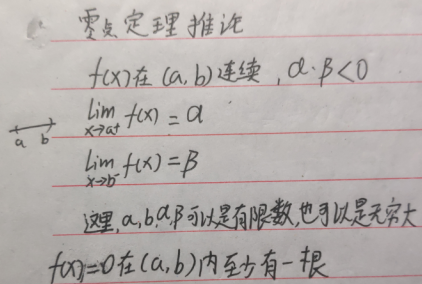 零点定理推论
f(x)在(a,b)连续,α·β<0
lim f(x)=α
x→a⁺
a b
lim f(x)=β
x→b⁻
这里,a,b,α,β可以是有限数,也可以是无穷大
f(x)=0在(a,b)内至少有一根